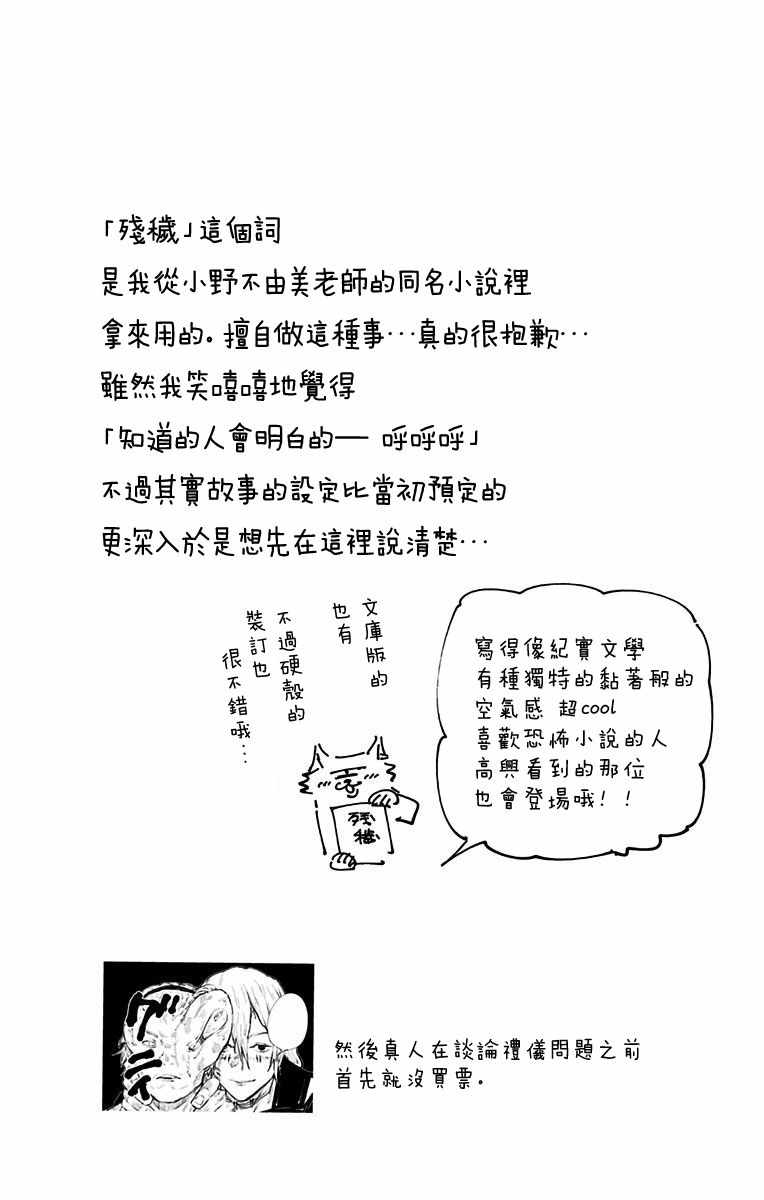 「殘穢」這個詞
是我從小野不由美老師的同名小說裡
拿來用的。擅自做這種事…真的很抱歉…
雖然我笑嘻嘻地覺得
「知道的人會明白的── 呼呼呼」
不過其實故事的設定比當初預定的
更深入於是想先在這裡說清楚…
文庫版的
也有
不過硬殼的
裝訂也
很不錯哦…
寫得像紀實文學
有種獨特的黏著般的
空氣感 超cool
喜歡恐怖小說的人
高興看到的那位
也會登場哦！！
殘
穢
グニィ
然後真人在談論禮儀問題之前
首先就沒買票。